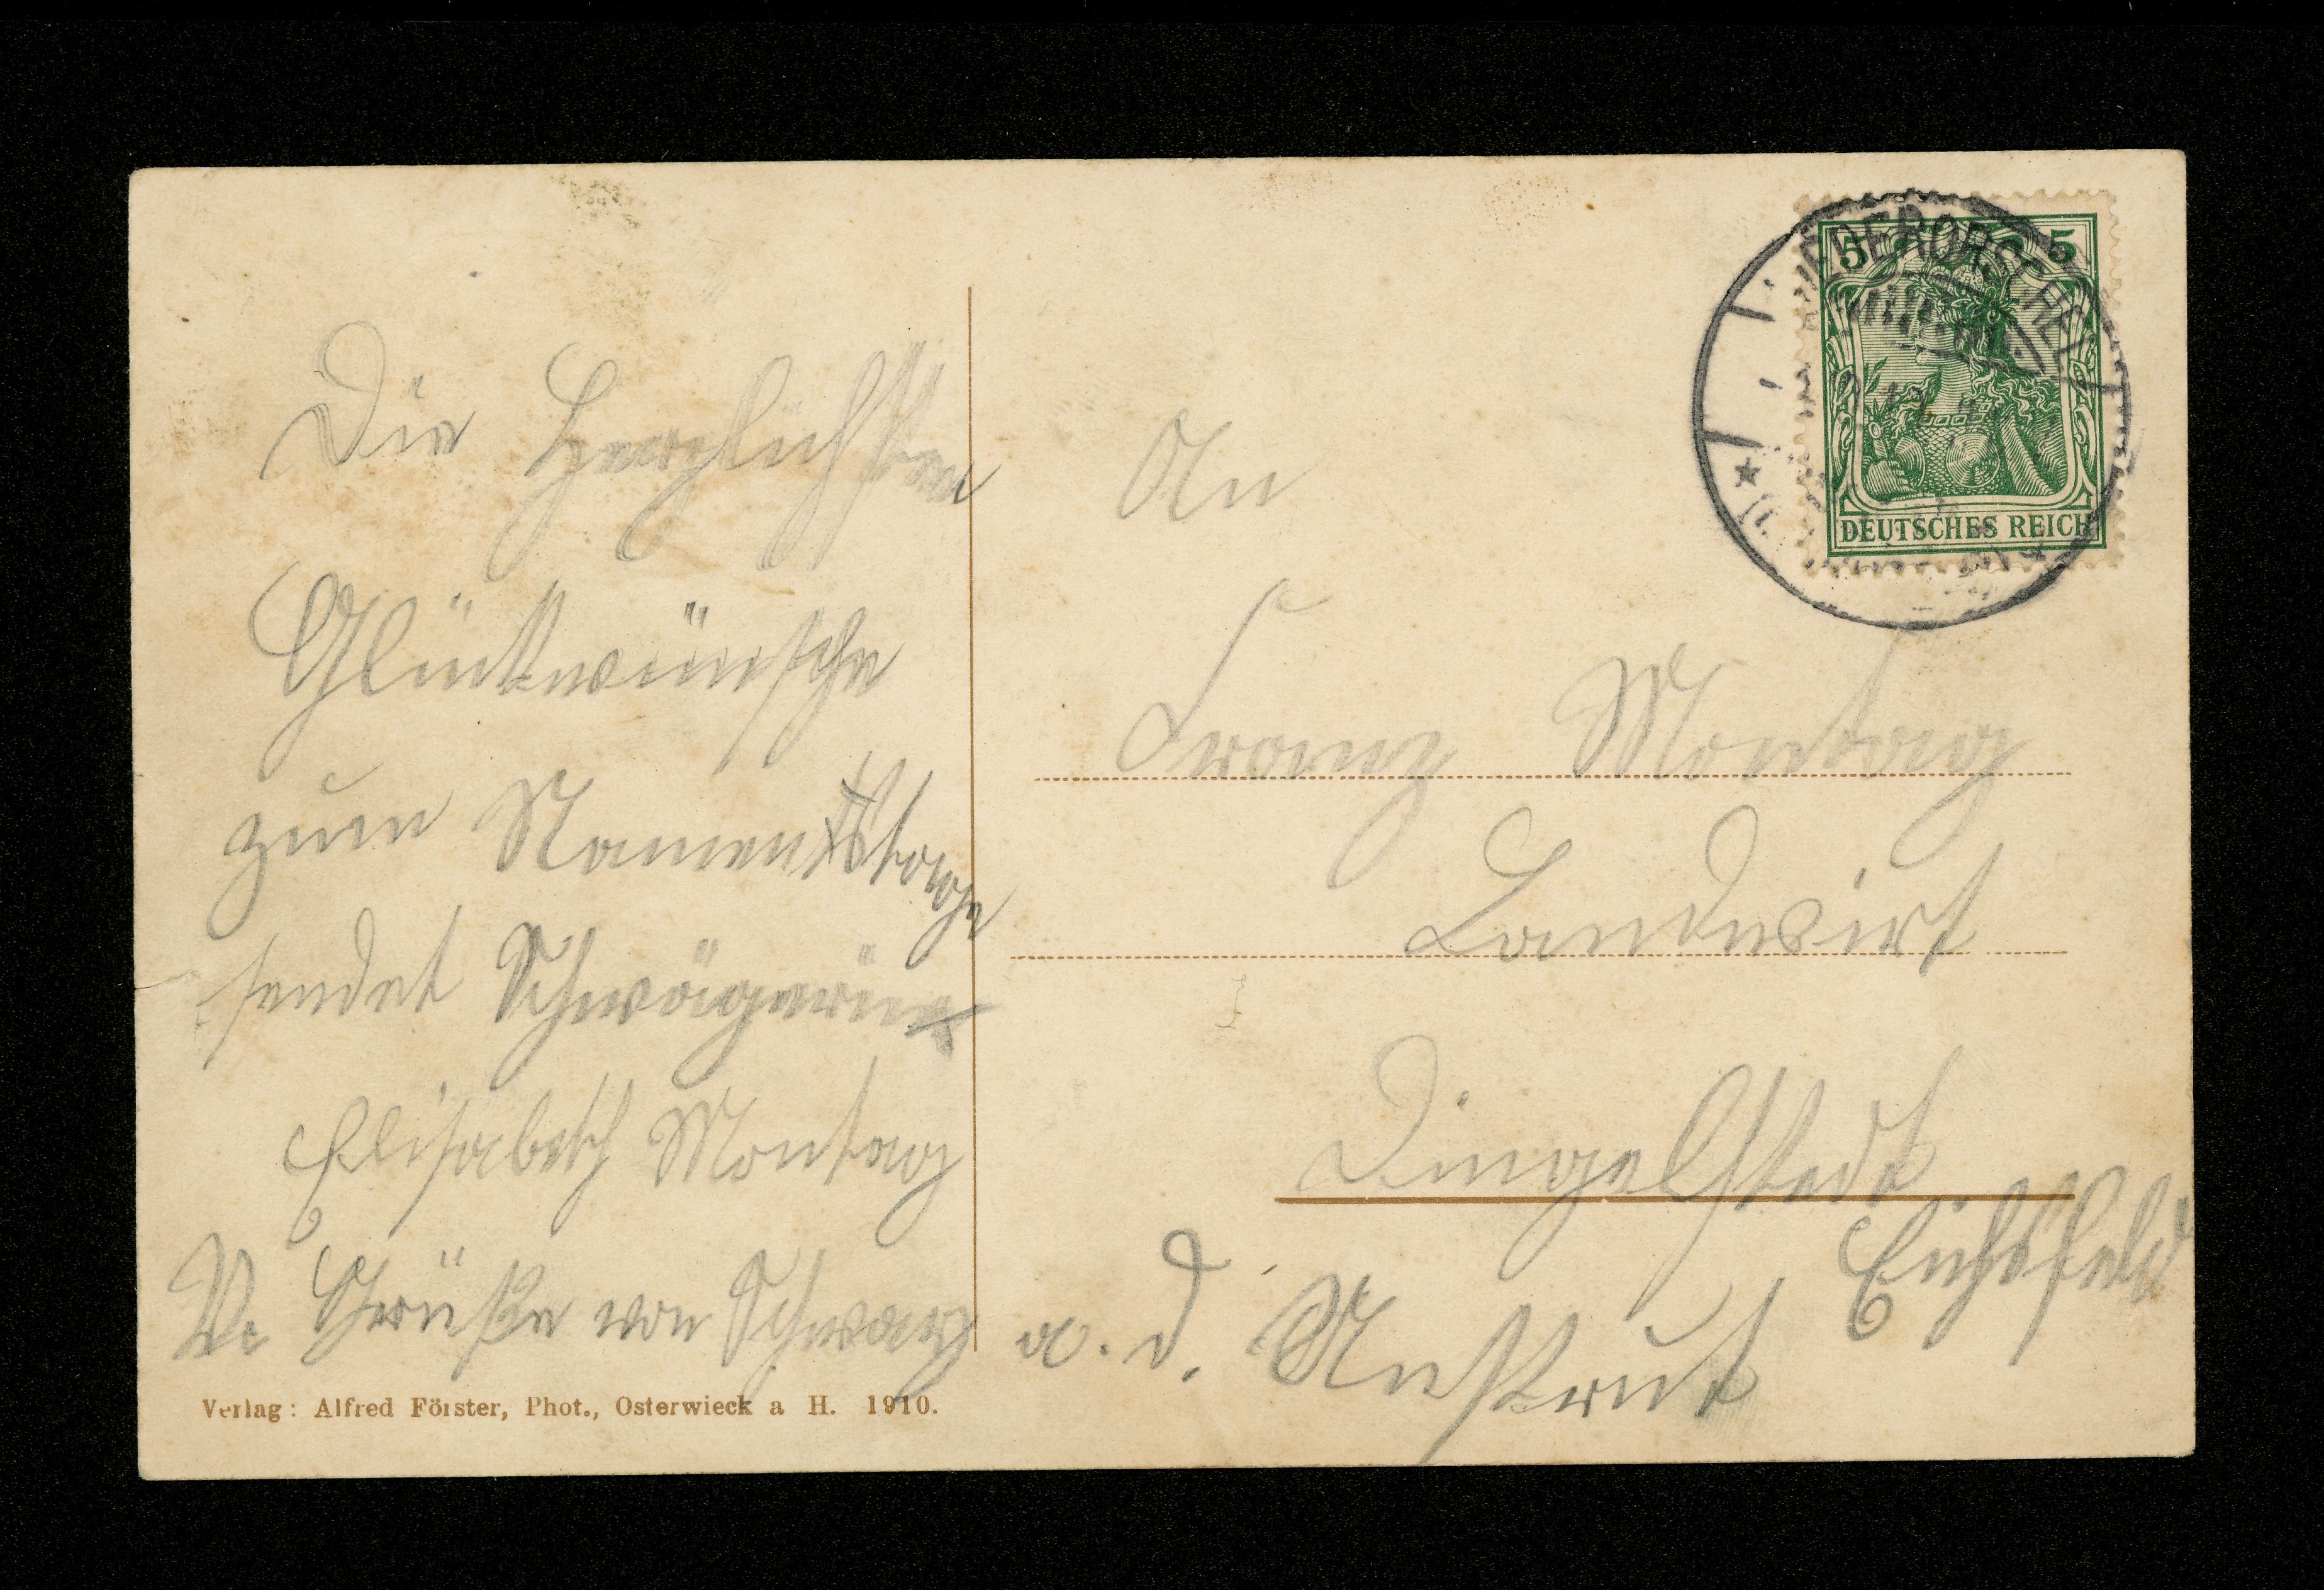 Die Herzlichsten
Glückwünsche
zum Namenstage
sendet Schwägerin
Elisabeth Montag
Grüße von Schwarz
Verlag: Alfred Förster, Phot., Osterwieck a H. 1910.
5 5
DEUTSCHES REICH
NIEDERORSCHEL
An
Franz Montag
Landwirt
Dingelstedt
Eichsfeld
a. d. Unstrut